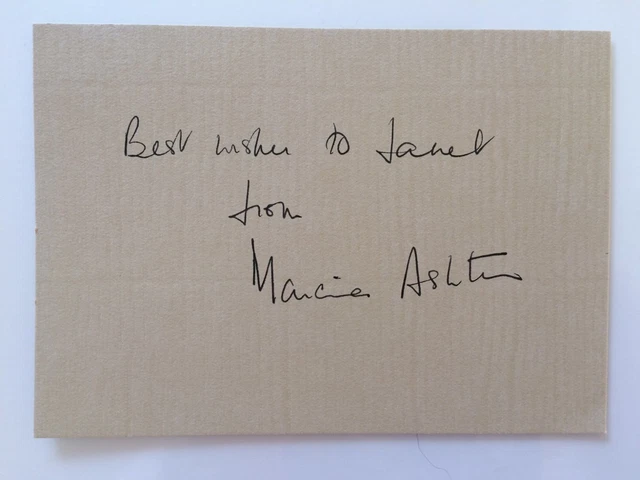 Best wishes to Janet
from
Marcia Ashton